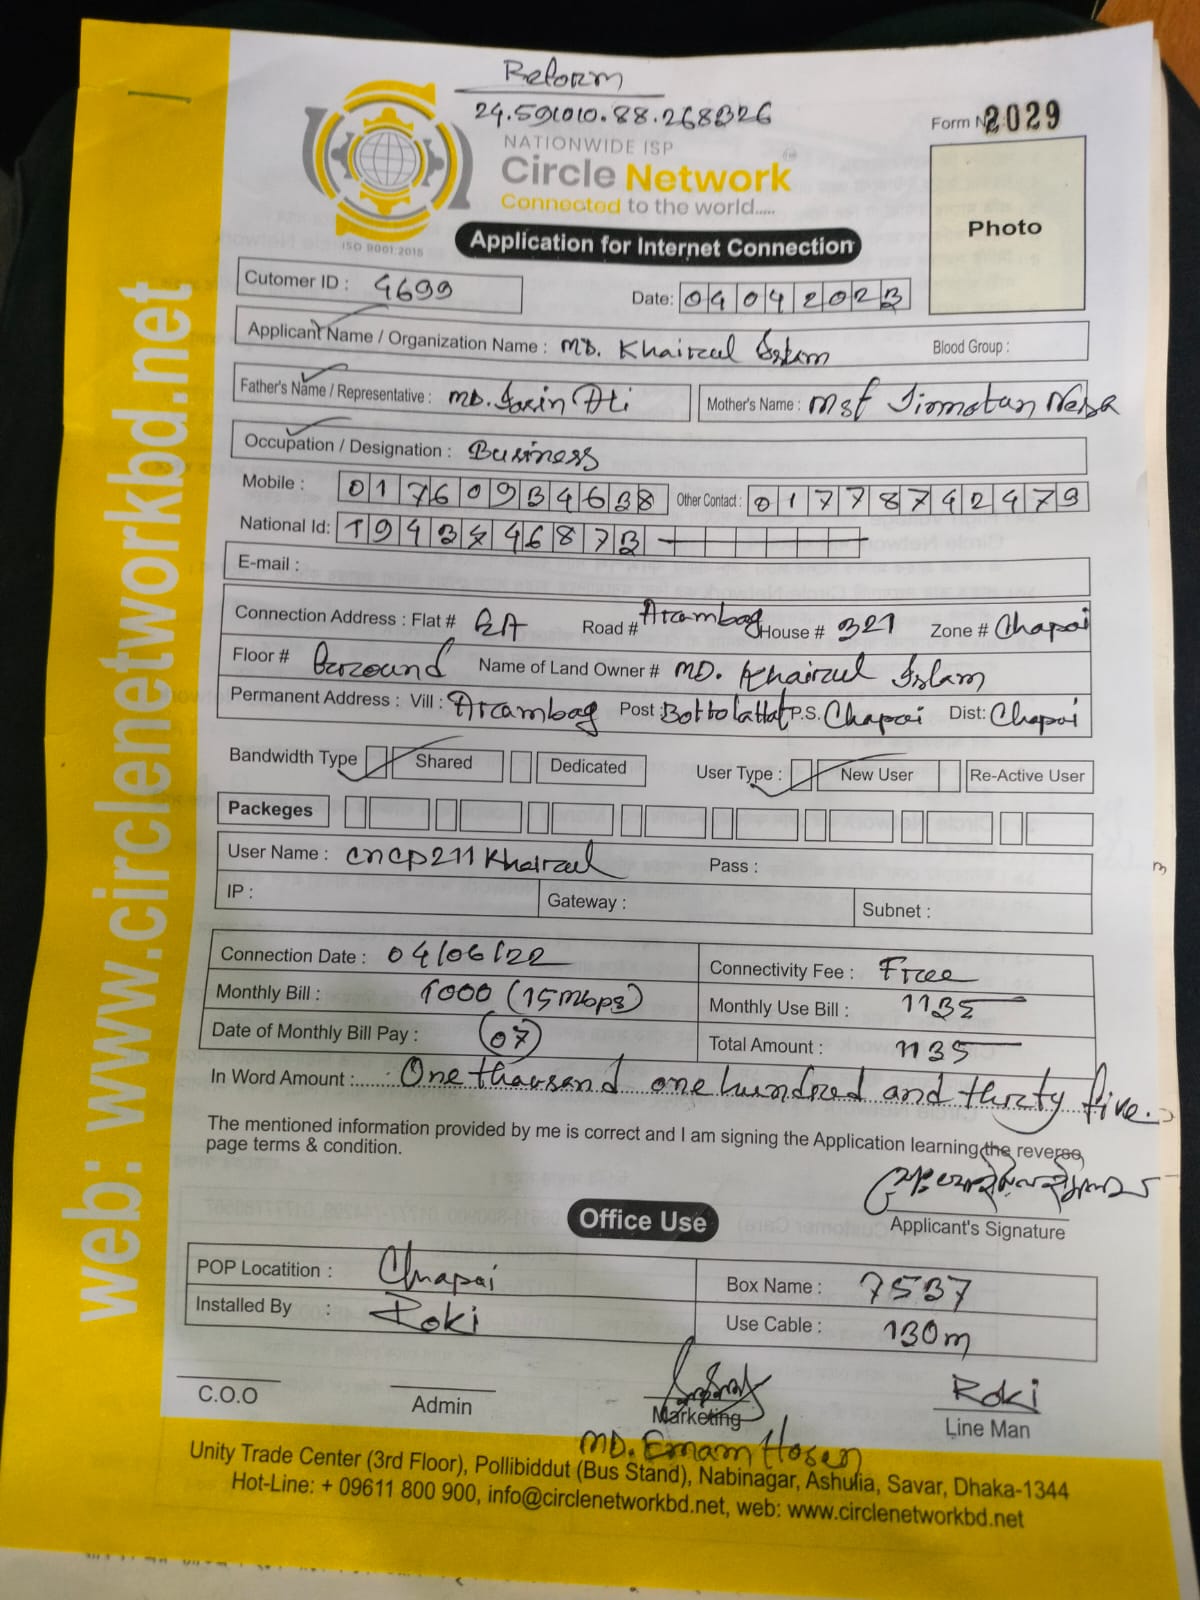 Reform
24.591010.88.268326
Form No 2029
NATIONWIDE ISP
Circle Network
Connected to the world.....
ISO 9001:2015
Photo
Application for Internet Connection
Cutomer ID : 4699
Date: 04042023
Applicant Name / Organization Name : MD. Khairul Islam Blood Group :
Father's Name / Representative : MD. Ali Mother's Name : Mst
Occupation / Designation : Business
Mobile : 01760934638 Other Contact : 01778742479
National Id:
E-mail :
Connection Address : Flat # Road # Arambag House # 321 Zone # Chapai
Floor # Ground Name of Land Owner # MD. Khairul Islam
Permanent Address : Vill : Arambag Post : P.S. Chapai Dist: Chapai
Bandwidth Type Shared Dedicated User Type : New User Re-Active User
Packeges
User Name : cncp211khairul Pass :
IP : Gateway : Subnet :
Connection Date : 04/06/22 Connectivity Fee : Free
Monthly Bill : 1000 (15Mbps) Monthly Use Bill : 1135
Date of Monthly Bill Pay : 07 Total Amount : 1135
In Word Amount :...... One thousand one hundred and thirty five.
The mentioned information provided by me is correct and I am signing the Application learning the reverse
page terms & condition.
Applicant's Signature
Office Use
POP Locatition : Chapai Box Name : 7537
Installed By : Roki Use Cable : 130m
Roki
C.O.O Admin Marketing Line Man
MD. Emam Hosen
Unity Trade Center (3rd Floor), Pollibiddut (Bus Stand), Nabinagar, Ashulia, Savar, Dhaka-1344
Hot-Line: + 09611 800 900, info@circlenetworkbd.net, web: www.circlenetworkbd.net
web: www.circlenetworkbd.net